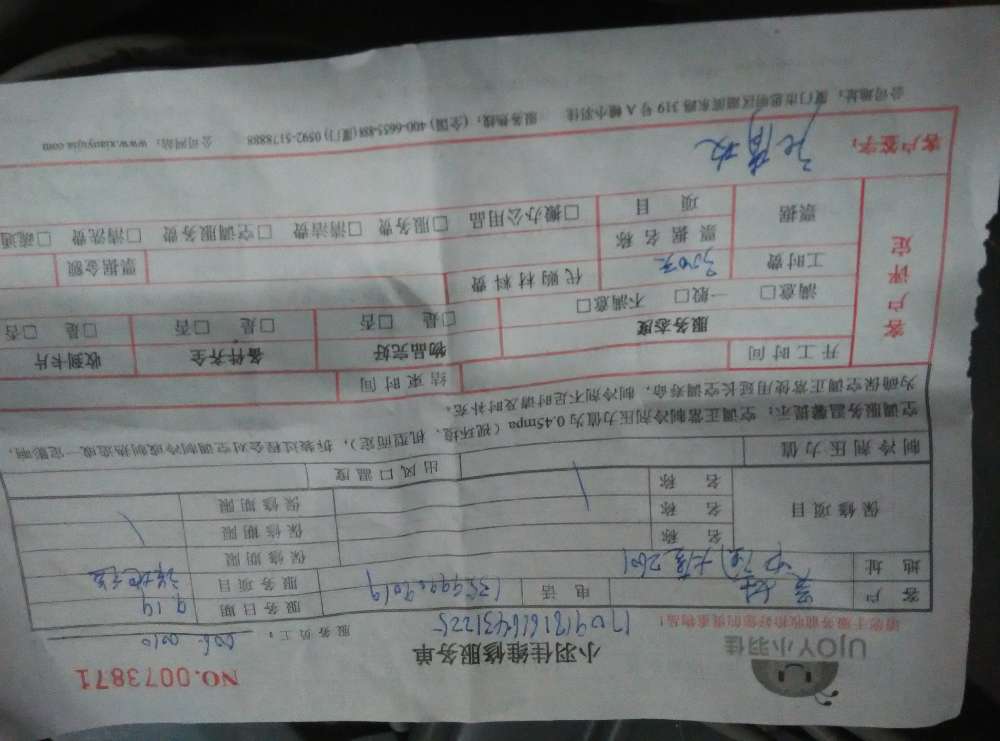 UJOY小羽佳
NO.0073871
小羽佳维修服务单
请您于服务前收拾好您的贵重物品!
17091816164431225
服务员工:
客户 电话 服务日期 9.19
地址 大厦2601 服务项目
保修项目 名称 保修期限
名称 保修期限
名称 保修期限
制冷剂压力值 出风口温度
空调服务温馨提示:空调正常制冷剂压力值为0.45mpa(视环境、机型而定),拆装过程会对空调制冷或制热造成一定影响,
为确保空调正常使用延长空调寿命,制冷剂不足时请及时补充。
客户评定
开工时间 结束时间
服务态度 物品完好 备件齐全 收到卡片
满意□ 一般□ 不满意□ □是 □否 □是 □否 □是 □否
工时费 代购材料费
票据 票据名称 票据金额
项目 □搬办公用品 □服务费 □清洁费 □空调服务费 □清洗费 □疏通
客户签字:
公司地址:厦门市思明区湖滨东路319号A幢小羽佳 服务热线:(全国)400-6655-888(厦门)0592-5178888 公司网站:www.xiaoyujia.com